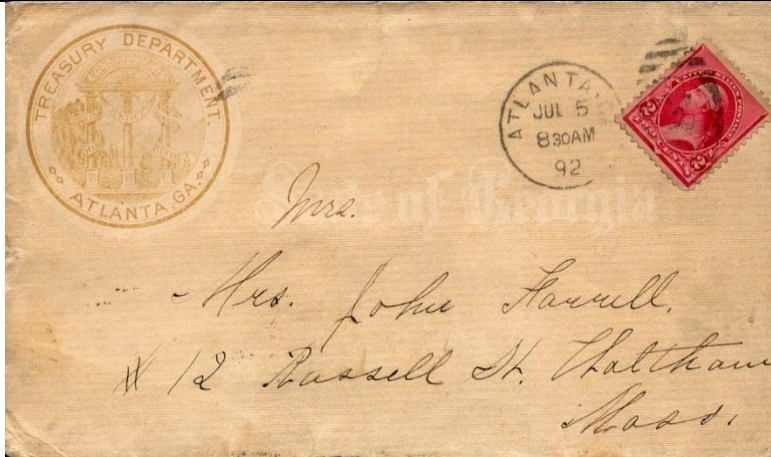 TREASURY DEPARTMENT.
ATLANTA, GA.
ATLANTA, G
JUL 5
830AM
92
State of Georgia
Mrs.
Mrs. John Farrell.
# 12 Russell St. Waltham
Mass.